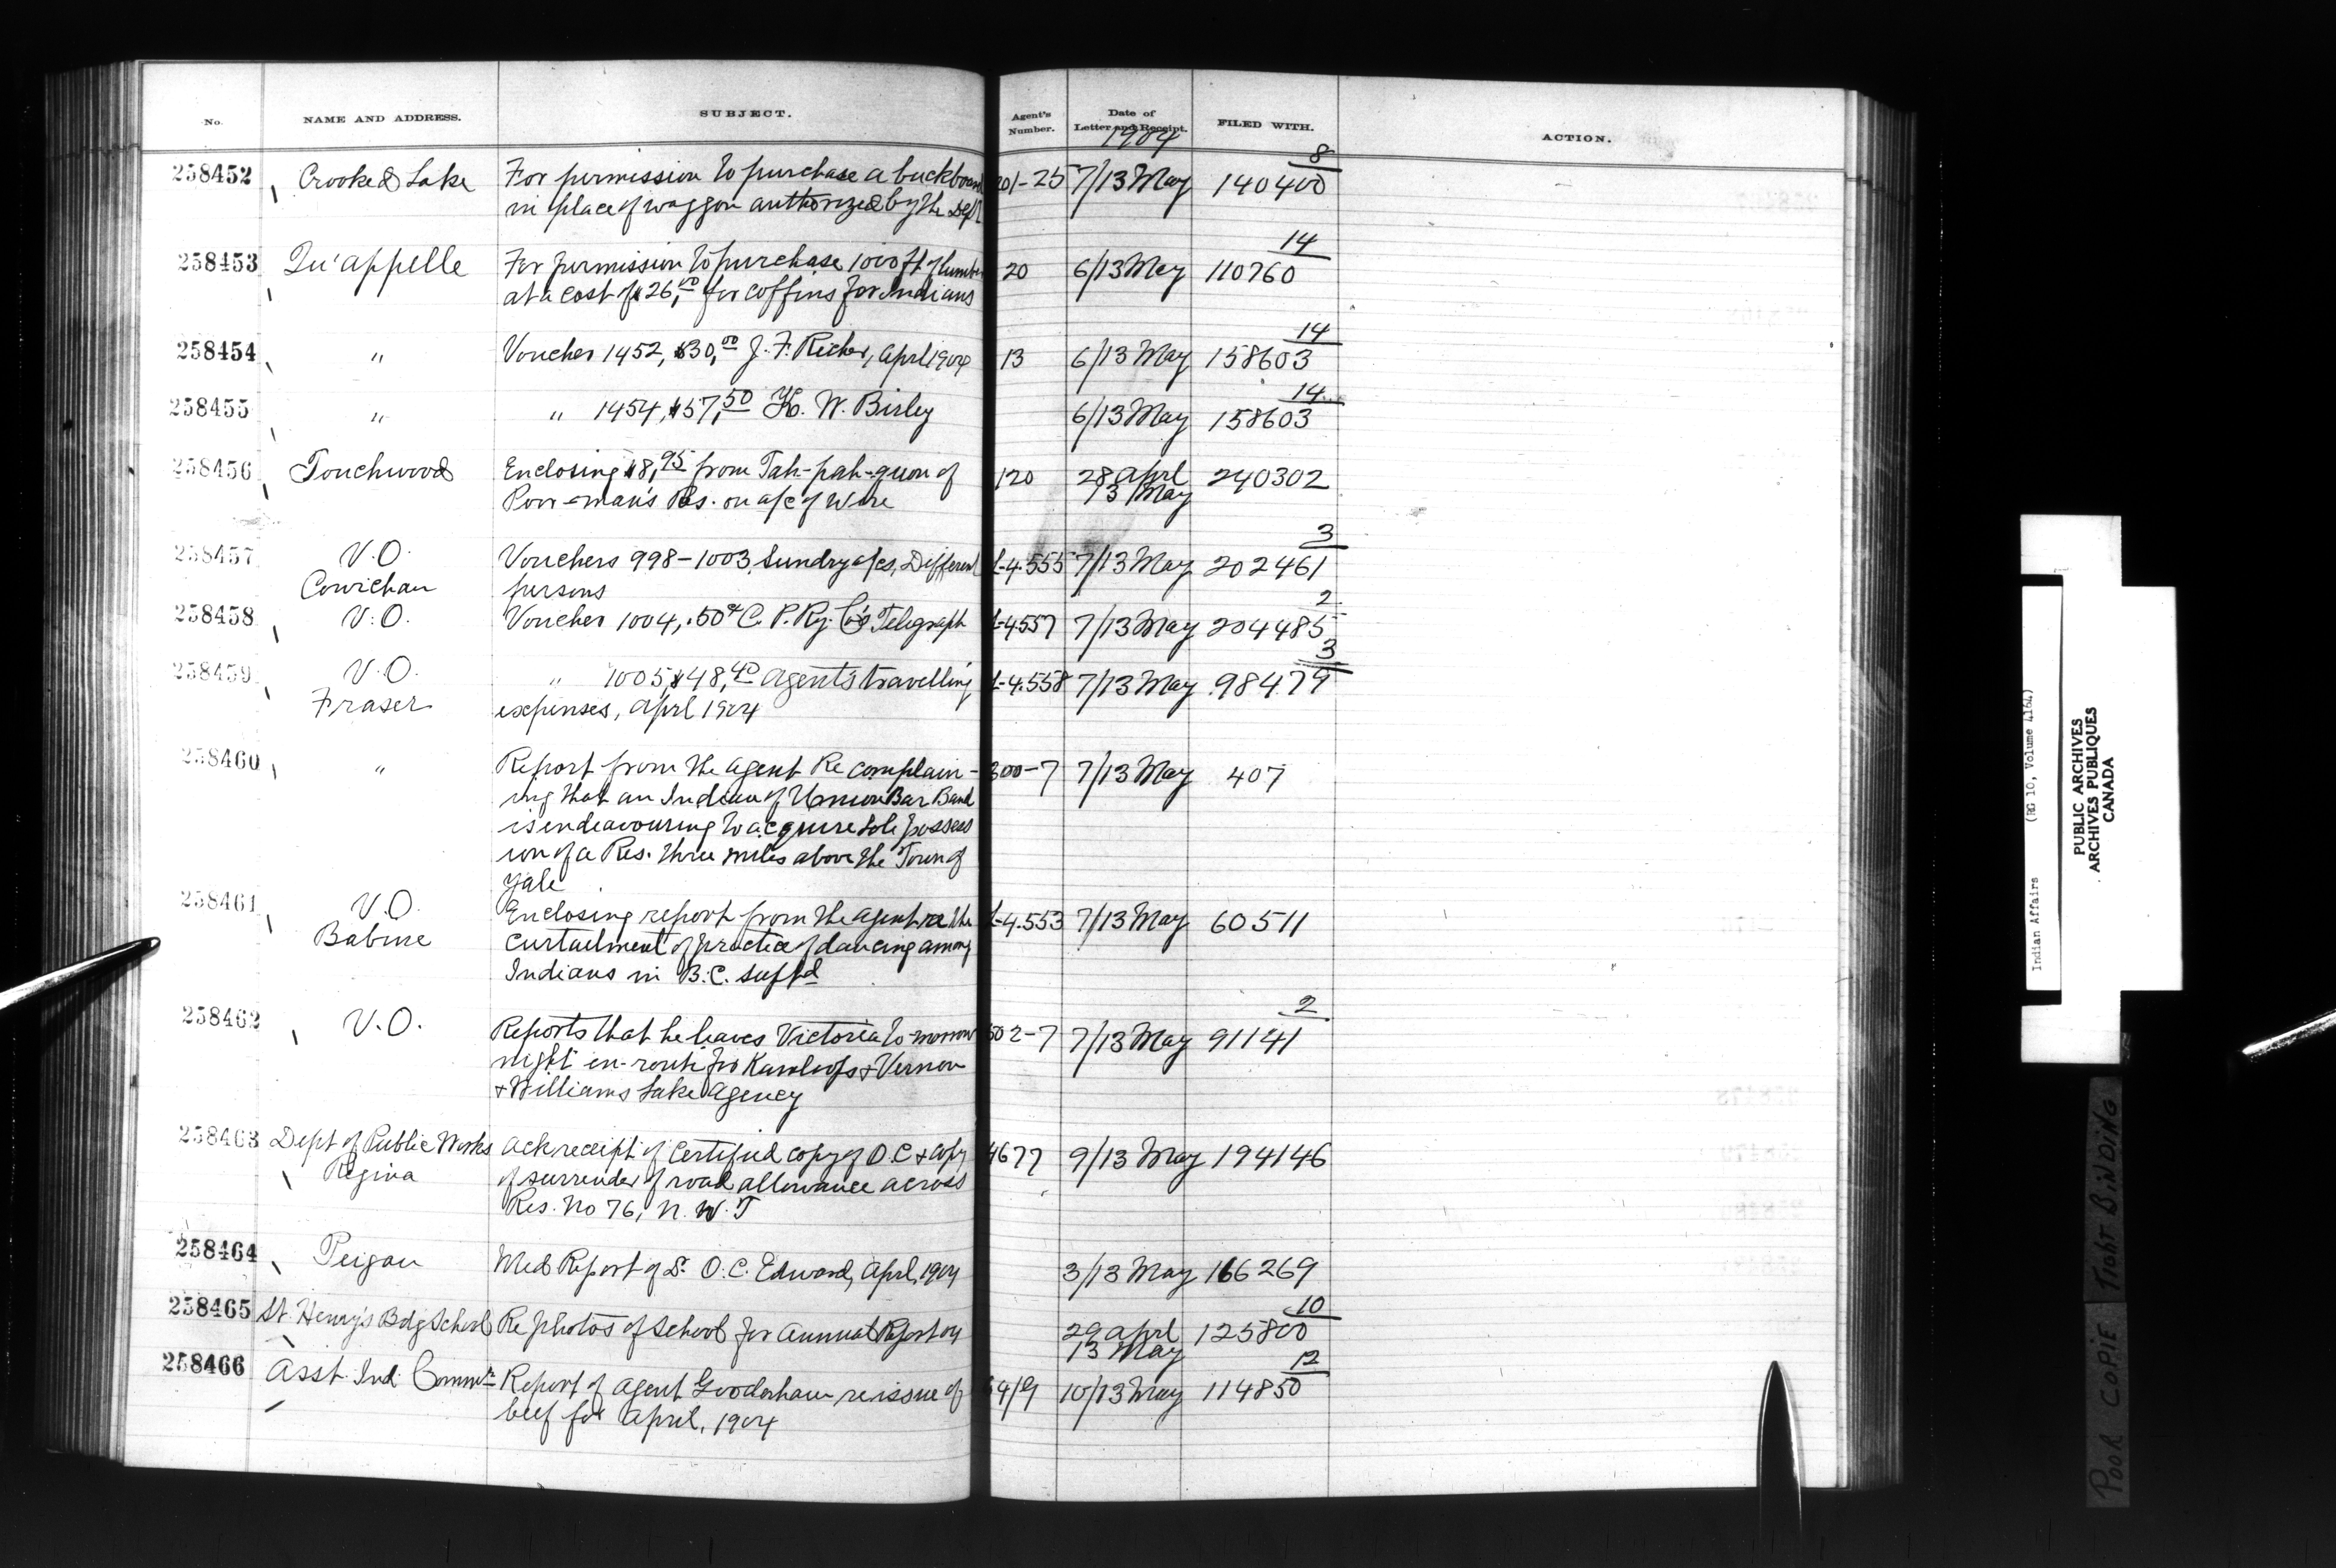 No. NAME AND ADDRESS. SUBJECT. Agent's Number. Date of Letter and Receipt. FILED WITH. ACTION.
1904
8
258452 Crooked Lake For permission to purchase a buckboard 201-25 7/13 May 140400
in place of waggon authorized by the Dept
14
258453 Qu'appelle For permission to purchase 1000 ft of lumber 20 6/13 May 110760
at a cost of $26,00 for coffins for Indians
14
258454 " Voucher 1452, $30,00 J. F. Richer, April 1904 13 6/13 May 158603
14
258455 " " 1454, $57,50 H. W. Birley 6/13 May 158603
258456 Touchwood Enclosing $8,95 from Tah-pah-quon of 120 28 April 240302
Poor-man's Res. on a/c of wire 13 May
3
258457 V.O. Vouchers 998-1003, Sundry a/cs, Different L-4.555 7/13 May 202461
Cowichan persons
2
258458 V.O. Voucher 1004, .50¢ C. P. Ry. Co's Telegraph L-4557 7/13 May 204485
3
258459 V.O. " 1005, $48,40 Agent's travelling L-4.558 7/13 May 98479
Fraser expenses, April 1904
258460 " Report from the agent Re complain- 300-7 7/13 May 407
ing that an Indian of Union Bar Band
is endeavouring to acquire sole possess
ion of a Res. three miles above the Town of
Yale
258461 V.O. Enclosing report from the agent re the L-4.553 7/13 May 60511
Babine curtailment of practice of dancing among
Indians in B.C. suptd
2
258462 V.O. Reports that he leaves Victoria to-morrow 502-7 7/13 May 91141
night en-route for Kamloops & Vernon
& Williams Lake Agency
258463 Dept of Public Works Ack receipt of Certified copy of O.C & copy 4677 9/13 May 194146
Regina of surrender of road allowance across
Res. No 76, N. W. T
258464 Peigan Med Report of Dr O. C. Edward, April, 1904 3/13 May 166269
10
258465 St. Henry's Bdg School Re photos of School for Annual Report 04 29 April 125800
13 May
12
258466 Asst. Ind. Commr Report of Agent Gooderham re issue of 10/13 May 114850
beef for April, 1904
Indian Affairs (RG 10, Volume 4164)
PUBLIC ARCHIVES
ARCHIVES PUBLIQUES
CANADA
POOR COPIE TIGHT BINDING